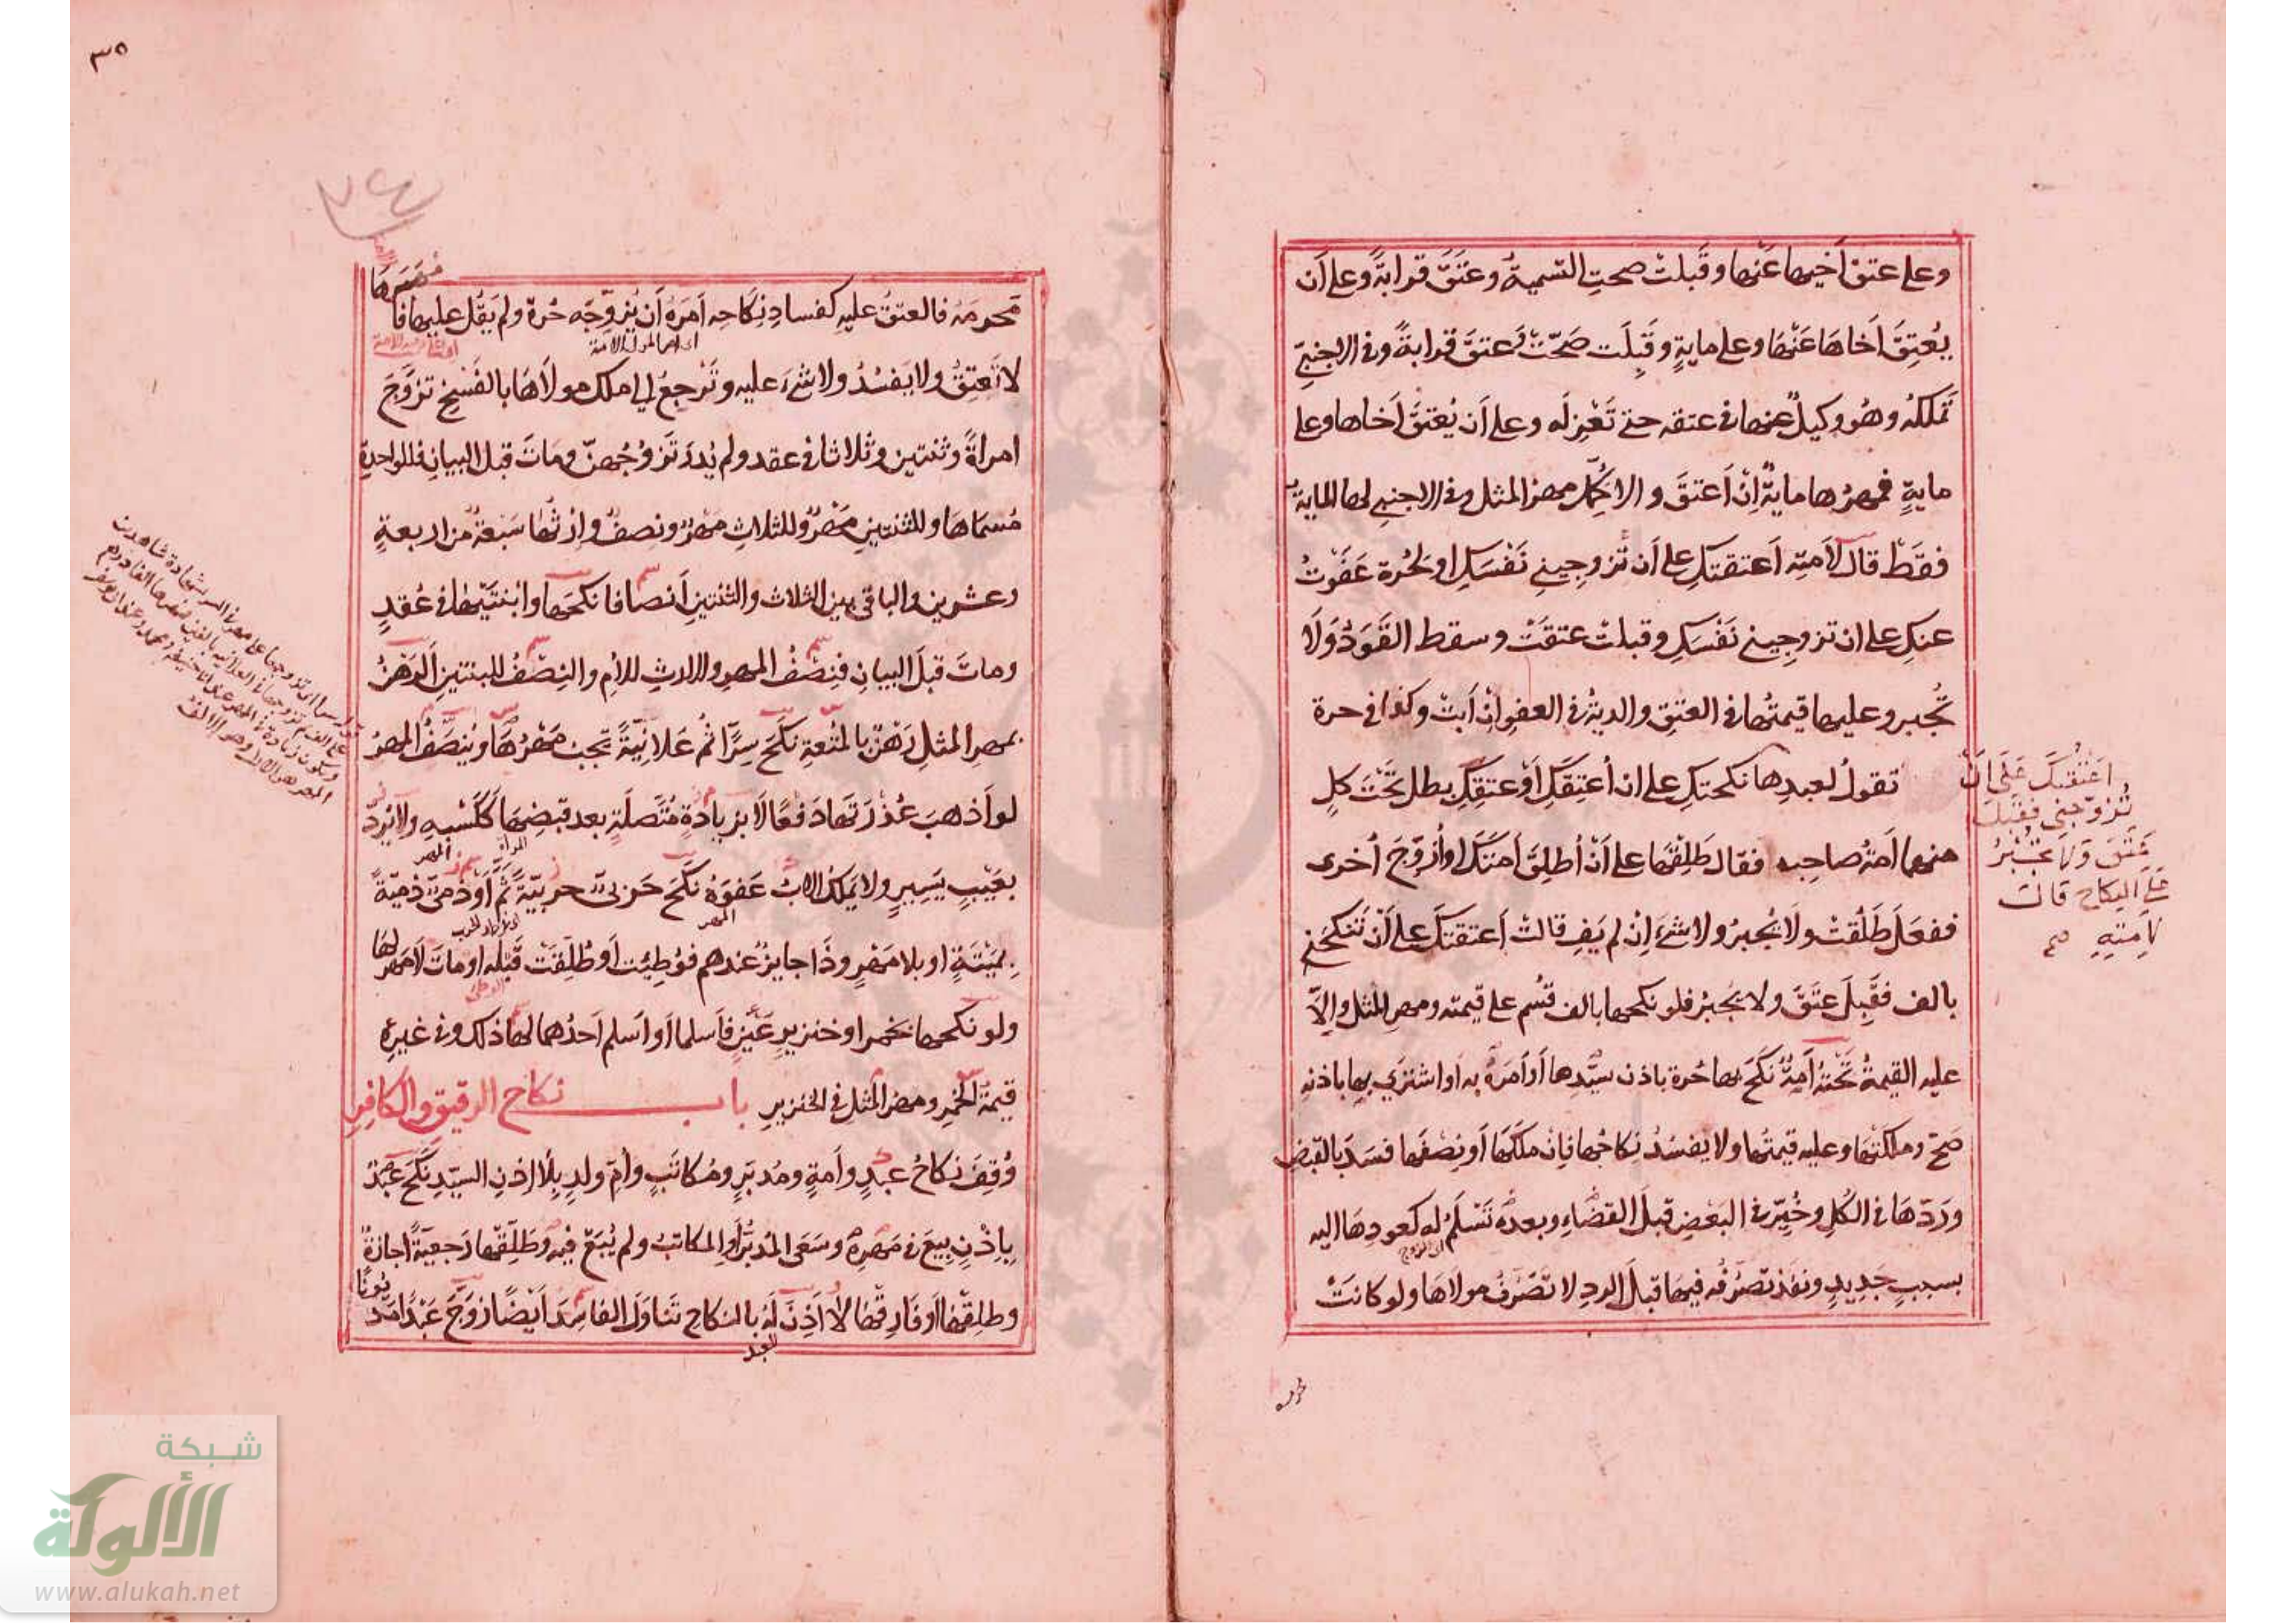 وعلى عتق أخيها عنها وقبلت صحت التسمية وعتق قرابة وعلى أن
يعتق أخاها عنها وعلى ماية وقبلت صحت وعتق قرابة وفي الاجنبي
تملكه وهو وكيل عنها في عتقه حتى تعزله وعلى أن يعتق أخاها وعلى
ماية فمهرها ماية إن أعتق والا كمل مهر المثل وفي الاجنبي لها الماية
فقط قال لأمته أعتقتك على أن تزوجيني نفسك او لحرة عفوت
عنك على ان تزوجيني نفسك وقبلت عتقت وسقط القود ولا
تجبر وعليها قيمتها في العتق والدية في العفو إن أبت وكذا في حرة
تقول لعبدها نكحتك على ان أعتقك أو عتقك بطل تحت كل
منهما أمة صاحبه فقال طلقها على أن أطلق أمتك او أزوج أخرى
ففعل طلقت ولا يجبر ولا شيء إن لم يف قالت أعتقتك على أن تنكحني
بالف فقبل عتق ولا يجبر فلو نكحها بالف قسم على قيمته ومهر المثل وإلا
عليه القيمة تحته أمة نكح بها حرة باذن سيدها أو أمره به أو اشترى بها باذنه
صح وملكتها وعليه قيمتها ولا يفسد نكاحها فإن ملكها أو نصفها فسد بالقبض
وردها في الكل وخير في البعض قبل القضاء وبعده تسلم له كعودها اليه
بسبب جديد ونفذ تصرفه فيها قبل الرد لا تصرف مولاها ولو كانت
اعتقتك على ان
تزوجني فقبل
عتق ولا يجبر
على النكاح قالت
لامته صح
٣٥
٧٤
محرمه فالعتق عليه كفساد نكاحه أمره أن يزوجه حرة ولم يقل عليها فا
لا تعتق ولا يفسد ولا شيء عليه وترجع إلى ملك مولاها بالفسخ تزوج
امرأة وثنتين وثلاثا في عقد ولم يدر تزوجهن ومات قبل البيان فللواحدة
مسماها وللثنتين مهر وللثلاث مهر ونصف وإرثها سبعة من اربعة
وعشرين والباقي بين الثلاث والثنتين أنصافا نكحها وابنتيها في عقد
ومات قبل البيان فنصف المهر والارث للأم والنصف للبنتين الرهن
بمهر المثل رهن بالمتعة نكح سرا ثم علانية تجب مهرها وينصف المهر
لو أذهب عذرتها دفعا لا بزيادة متصلة بعد قبضها ككسبه ولا يرد
بعيب يسير ولا يملك الاب عفوه نكح حربي حربية ثم أو ذمي ذمية
بميتة او بلا مهر وذا جايز عندهم فوطئت أو طلقت قبله او مات لا مهر لها
ولو نكحها بخمر او خنزير عين فأسلما أو أسلم أحدهما لها ذلك وفي غيره
قيمة الخمر ومهر المثل في الخنزير باب نكاح الرقيق والكافر
وقف نكاح عبد وأمة ومدبر ومكاتب وأم ولد بلا إذن السيد نكح عبد
بإذن بيع في مهره وسعى المدبر أو المكاتب ولم يبع فيه وطلقها رجعية اجازة
وطلقها أو فارقها لا أذن له بالنكاح تناول الفاسد أيضا زوج عبدا مديونا
العبد
شبكة
الألوكة
www.alukah.net